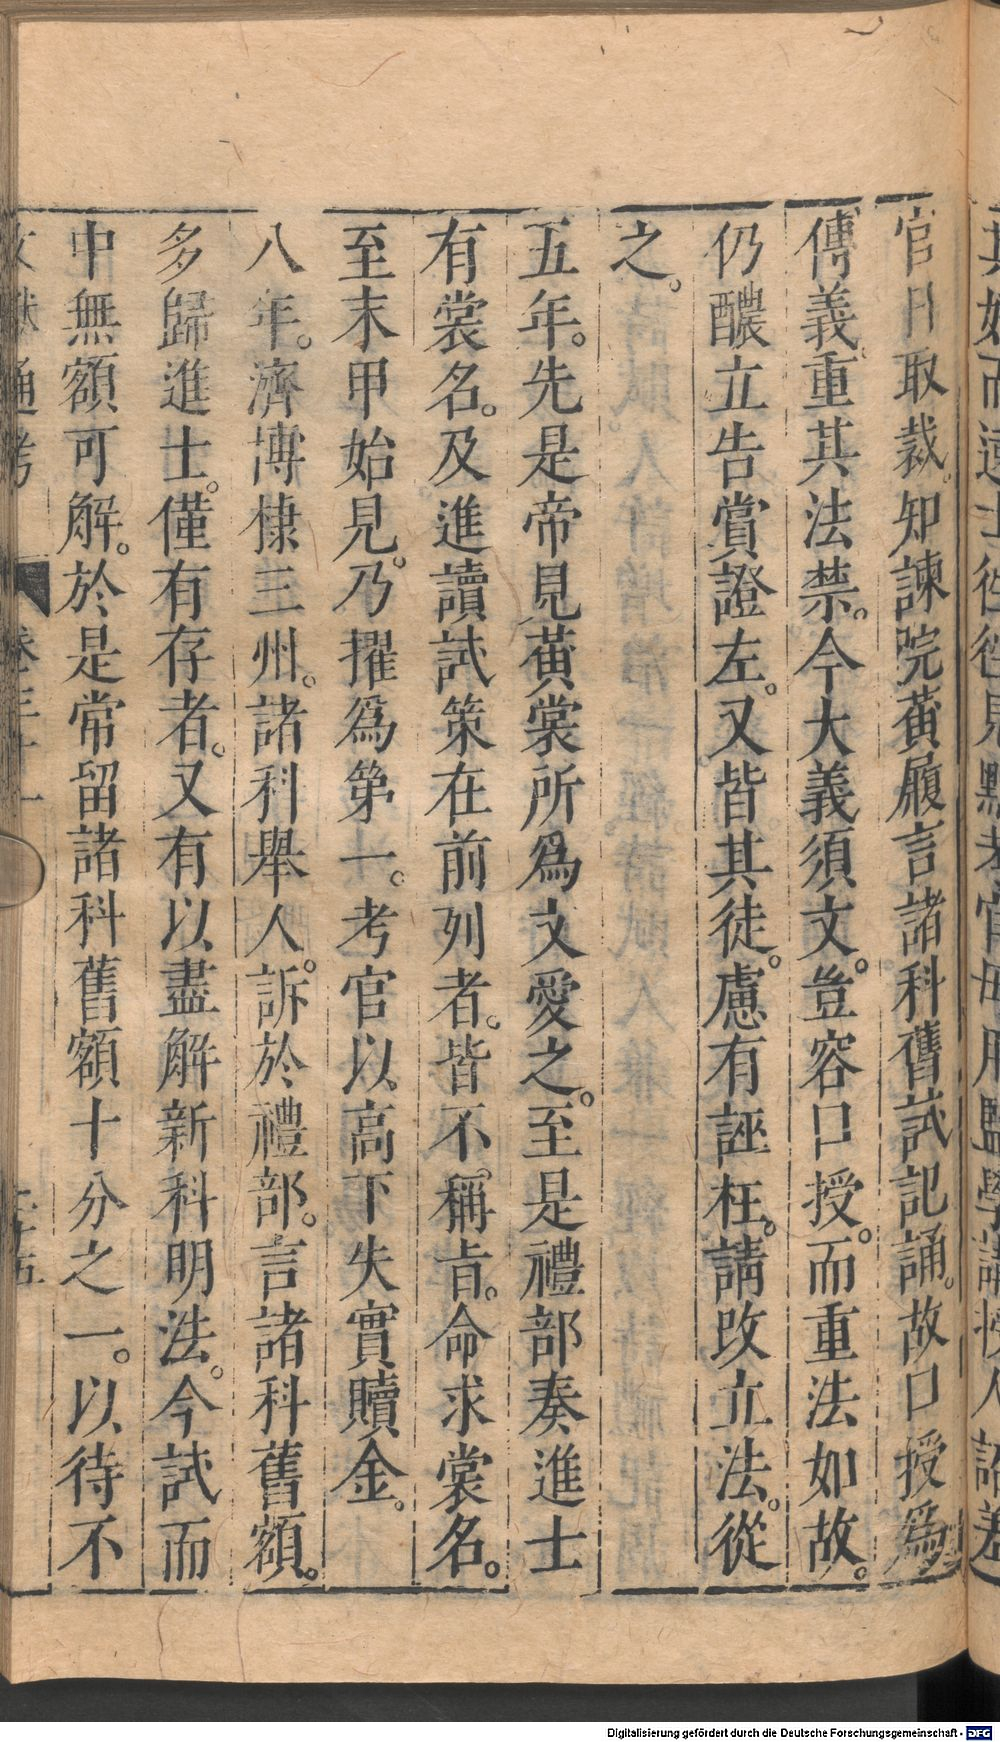 官日取裁。知諫院黃履言諸科舊試記誦。故口授爲
傳義重其法禁。今大義須文。豈容口授。而重法如故。
仍釀立告賞證左。又皆其徒。慮有誣枉。請改立法。從
之。
五年。先是帝見黃裳所爲文愛之。至是禮部奏進士
有裳名。及進讀試策在前列者。皆不稱旨。命求裳名。
至末甲始見。乃擢爲第一。考官以高下失實贖金。
八年。濟博棣三州。諸科舉人。訴於禮部。言諸科舊額。
多歸進士。僅有存者。又有以盡解新科明法。今試而
中無額可解。於是常留諸科舊額十分之一。以待不
文獻通考 卷三十一
Digitalisierung gefördert durch die Deutsche Forschungsgemeinschaft - DFG